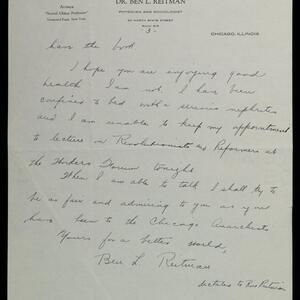 Author
"Second Oldest Profession"
Vanguard Press, New York
DR. BEN L. REITMAN
PHYSICIAN AND SOCIOLOGIST
32 NORTH STATE STREET
CHICAGO, ILLINOIS
- 3 -
have the book.
I hope you are enjoying good
health I am not. I has been
confined to bed with a serious nephrites
and I am unable to keep my appointment
to lecture on Revolutionists and Reformers at
the Hinders Forum tonight
When I am able to talk I shall try to
be as fair and admiring to you as you
have been to the Chicago Anarchists
Yours for a better world,
Ben L Reitman
dictated to